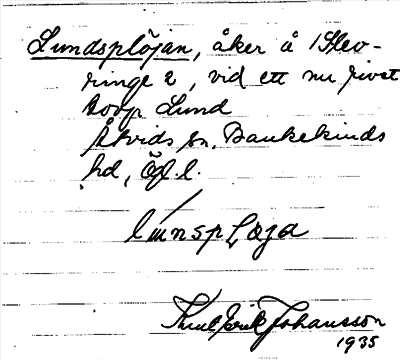 Lundsplöjan, åker å Slev-
ringe 2, vid ett nu rivet
torp Lund
Åtvids sn, Bankekinds
hd, Ög. l.
Knut Erik Johansson
1935